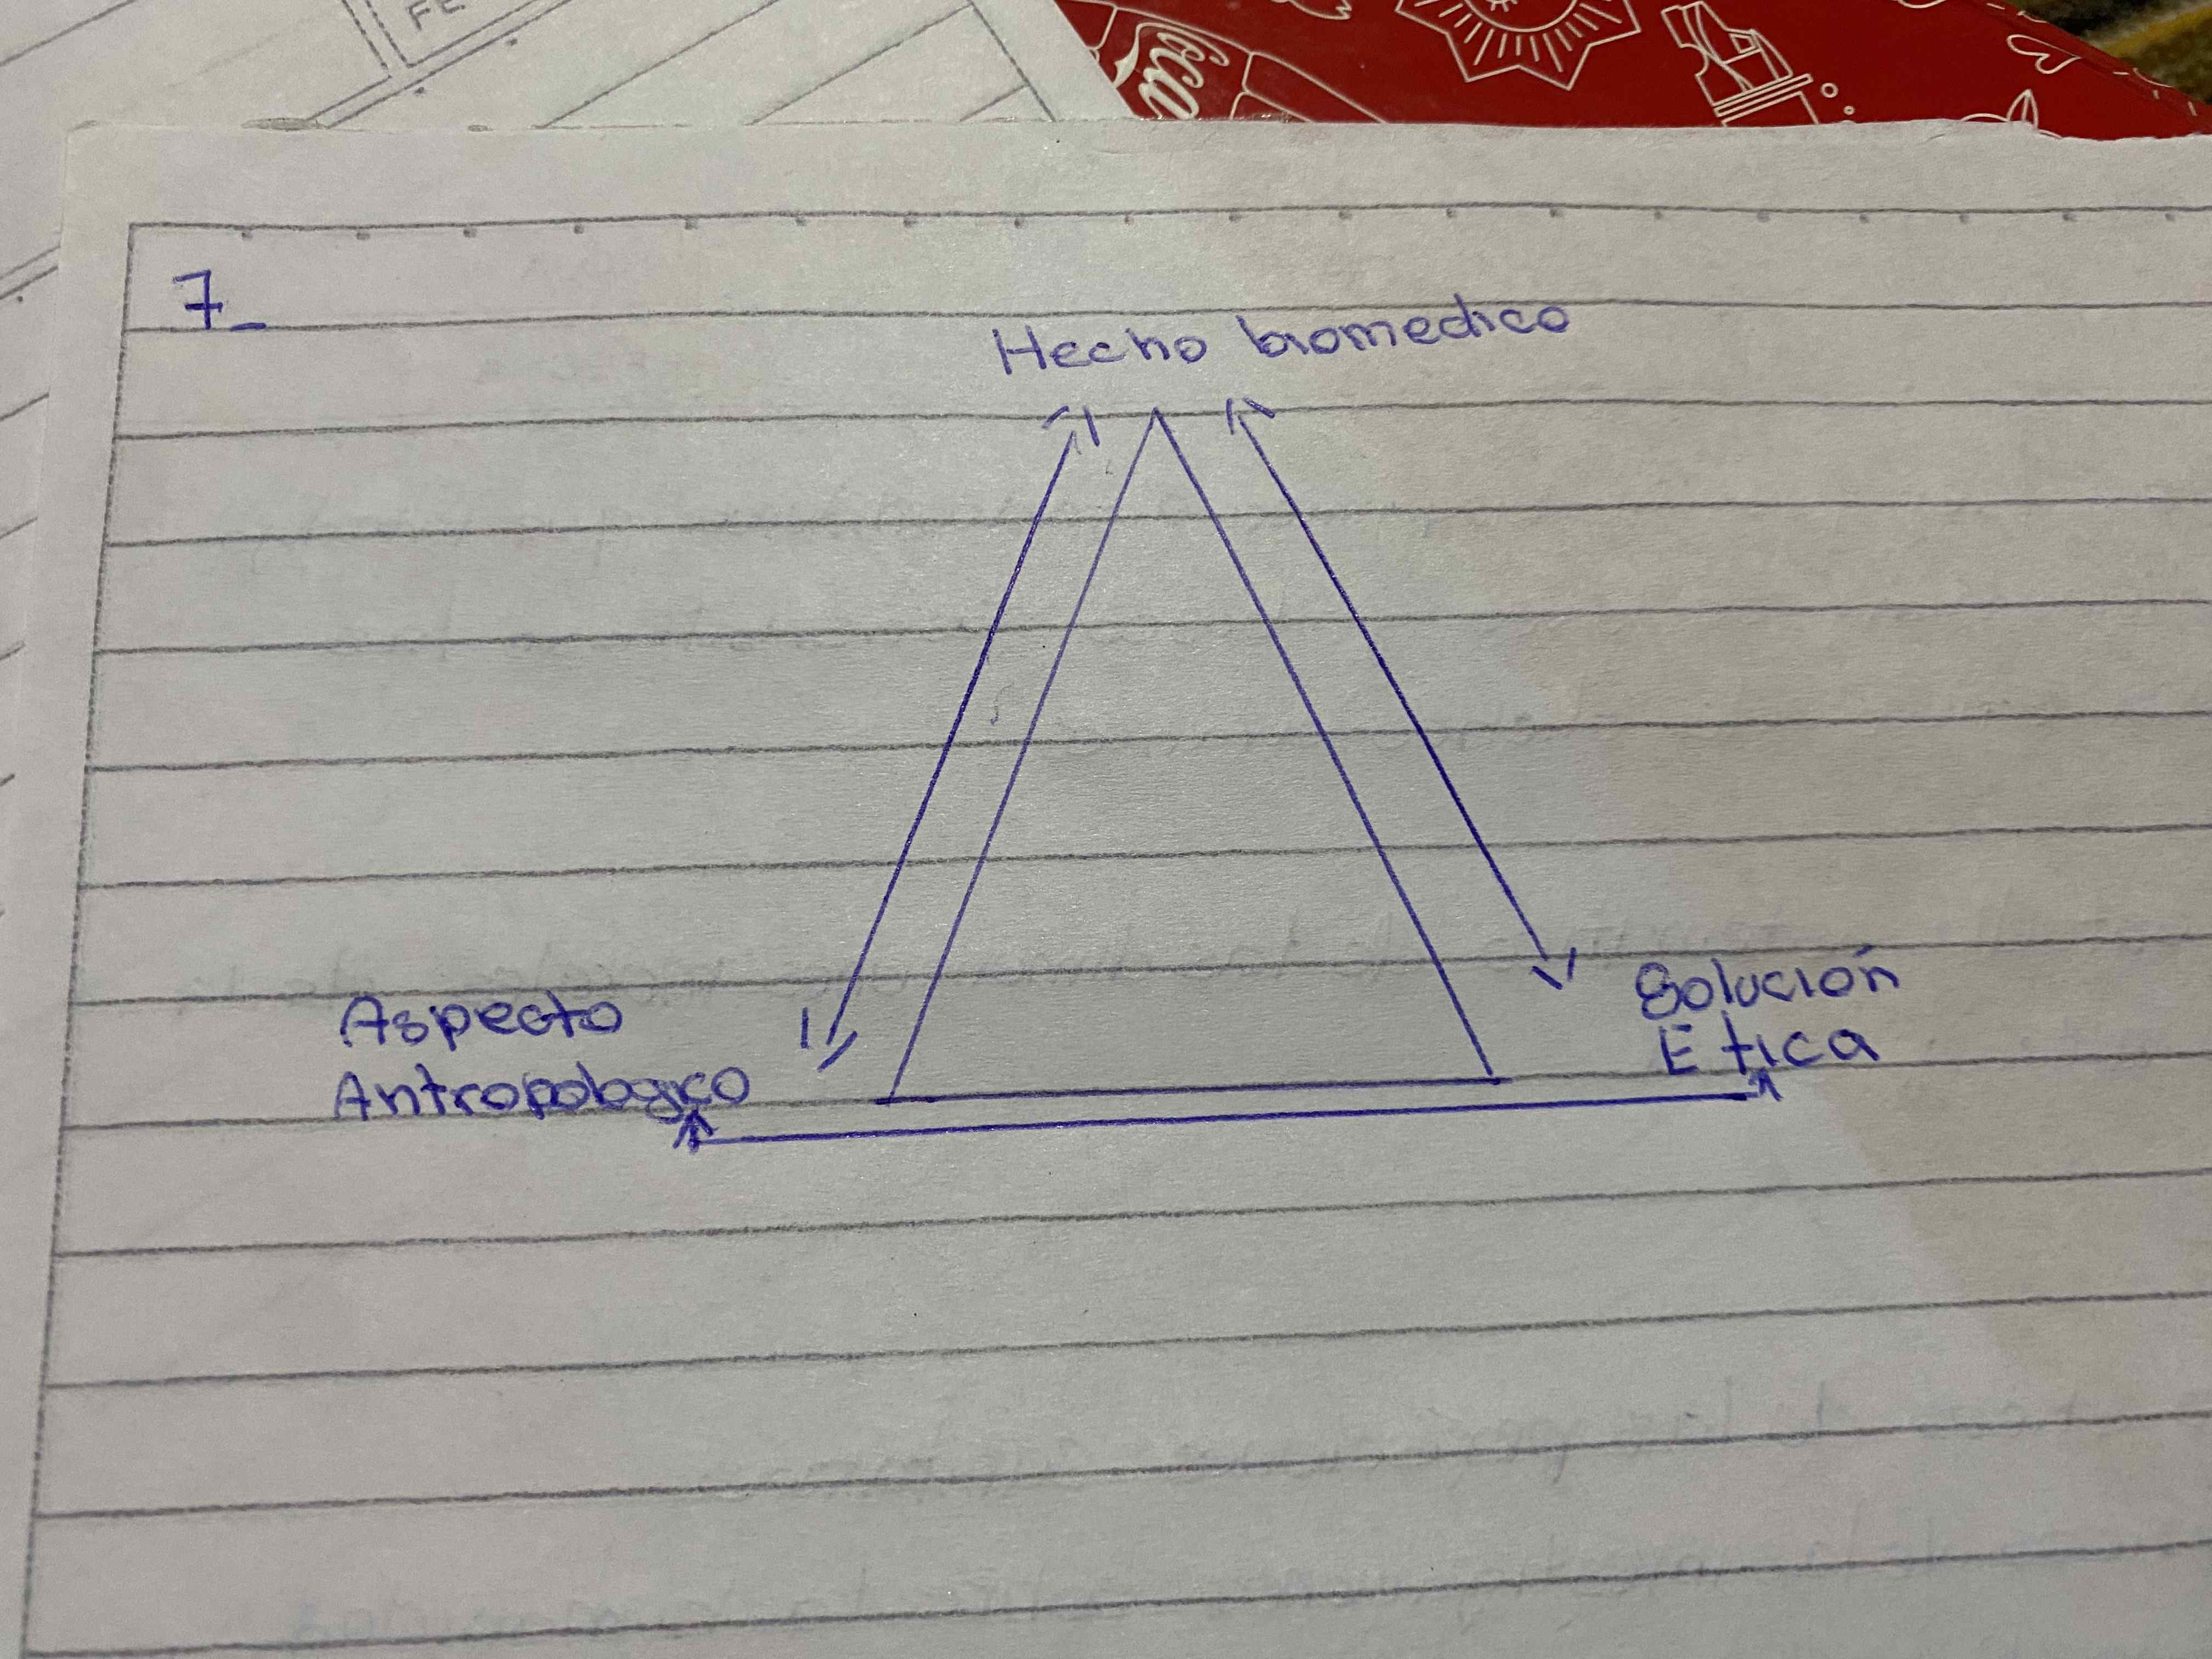 FE
Coca
7_
Hecho biomedico
Aspecto
Antropologico
Solución
Etica